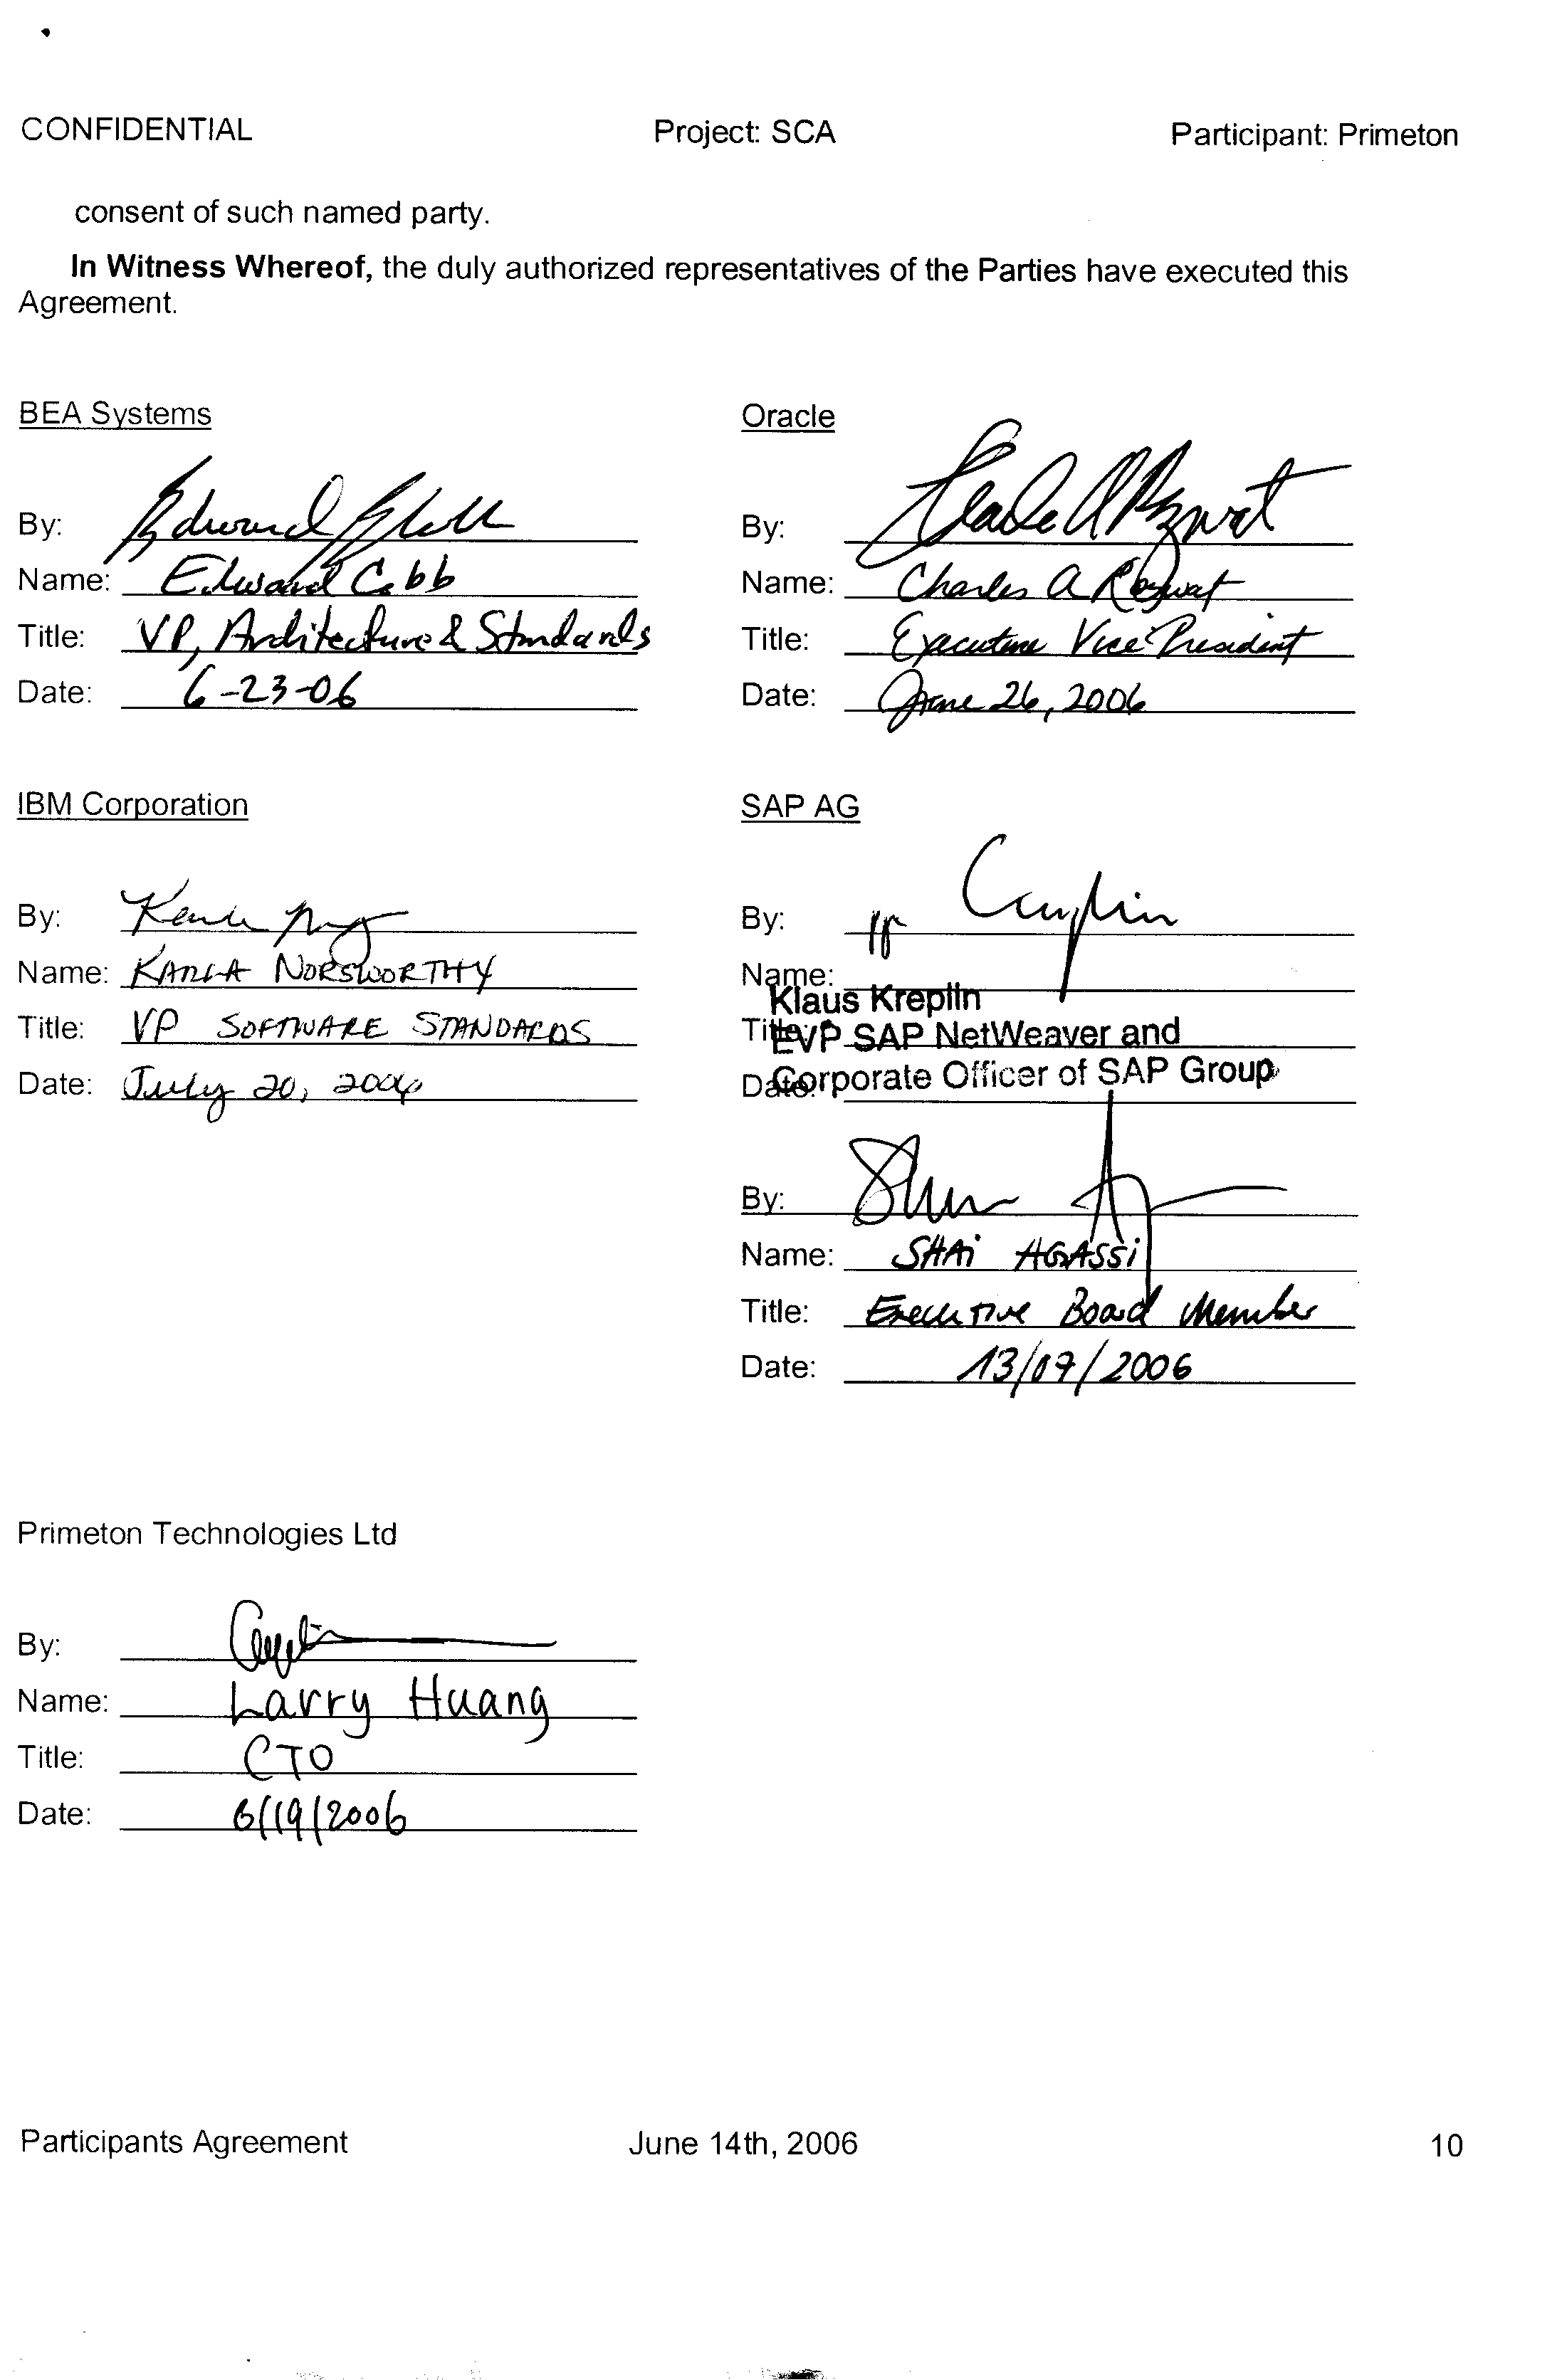 CONFIDENTIAL Project: SCA Participant: Primeton
consent of such named party.
In Witness Whereof, the duly authorized representatives of the Parties have executed this
Agreement.
BEA Systems
By:
Name: Edward Cobb
Title: VP, Architecture & Standards
Date: 6-23-06
Oracle
By:
Name: Charles A Rozwat
Title: Executive Vice President
Date: June 26, 2006
IBM Corporation
By:
Name: KARLA NORSWORTHY
Title: VP SOFTWARE STANDARDS
Date: July 20, 2006
SAP AG
By:
Name:
Klaus Kreplin
Title:
EVP SAP NetWeaver and
Date:
Corporate Officer of SAP Group
By:
Name: SHAI AGASSI
Title: Executive Board Member
Date: 13/07/2006
Primeton Technologies Ltd
By:
Name: Larry Huang
Title: CTO
Date: 6/19/2006
Participants Agreement June 14th, 2006 10